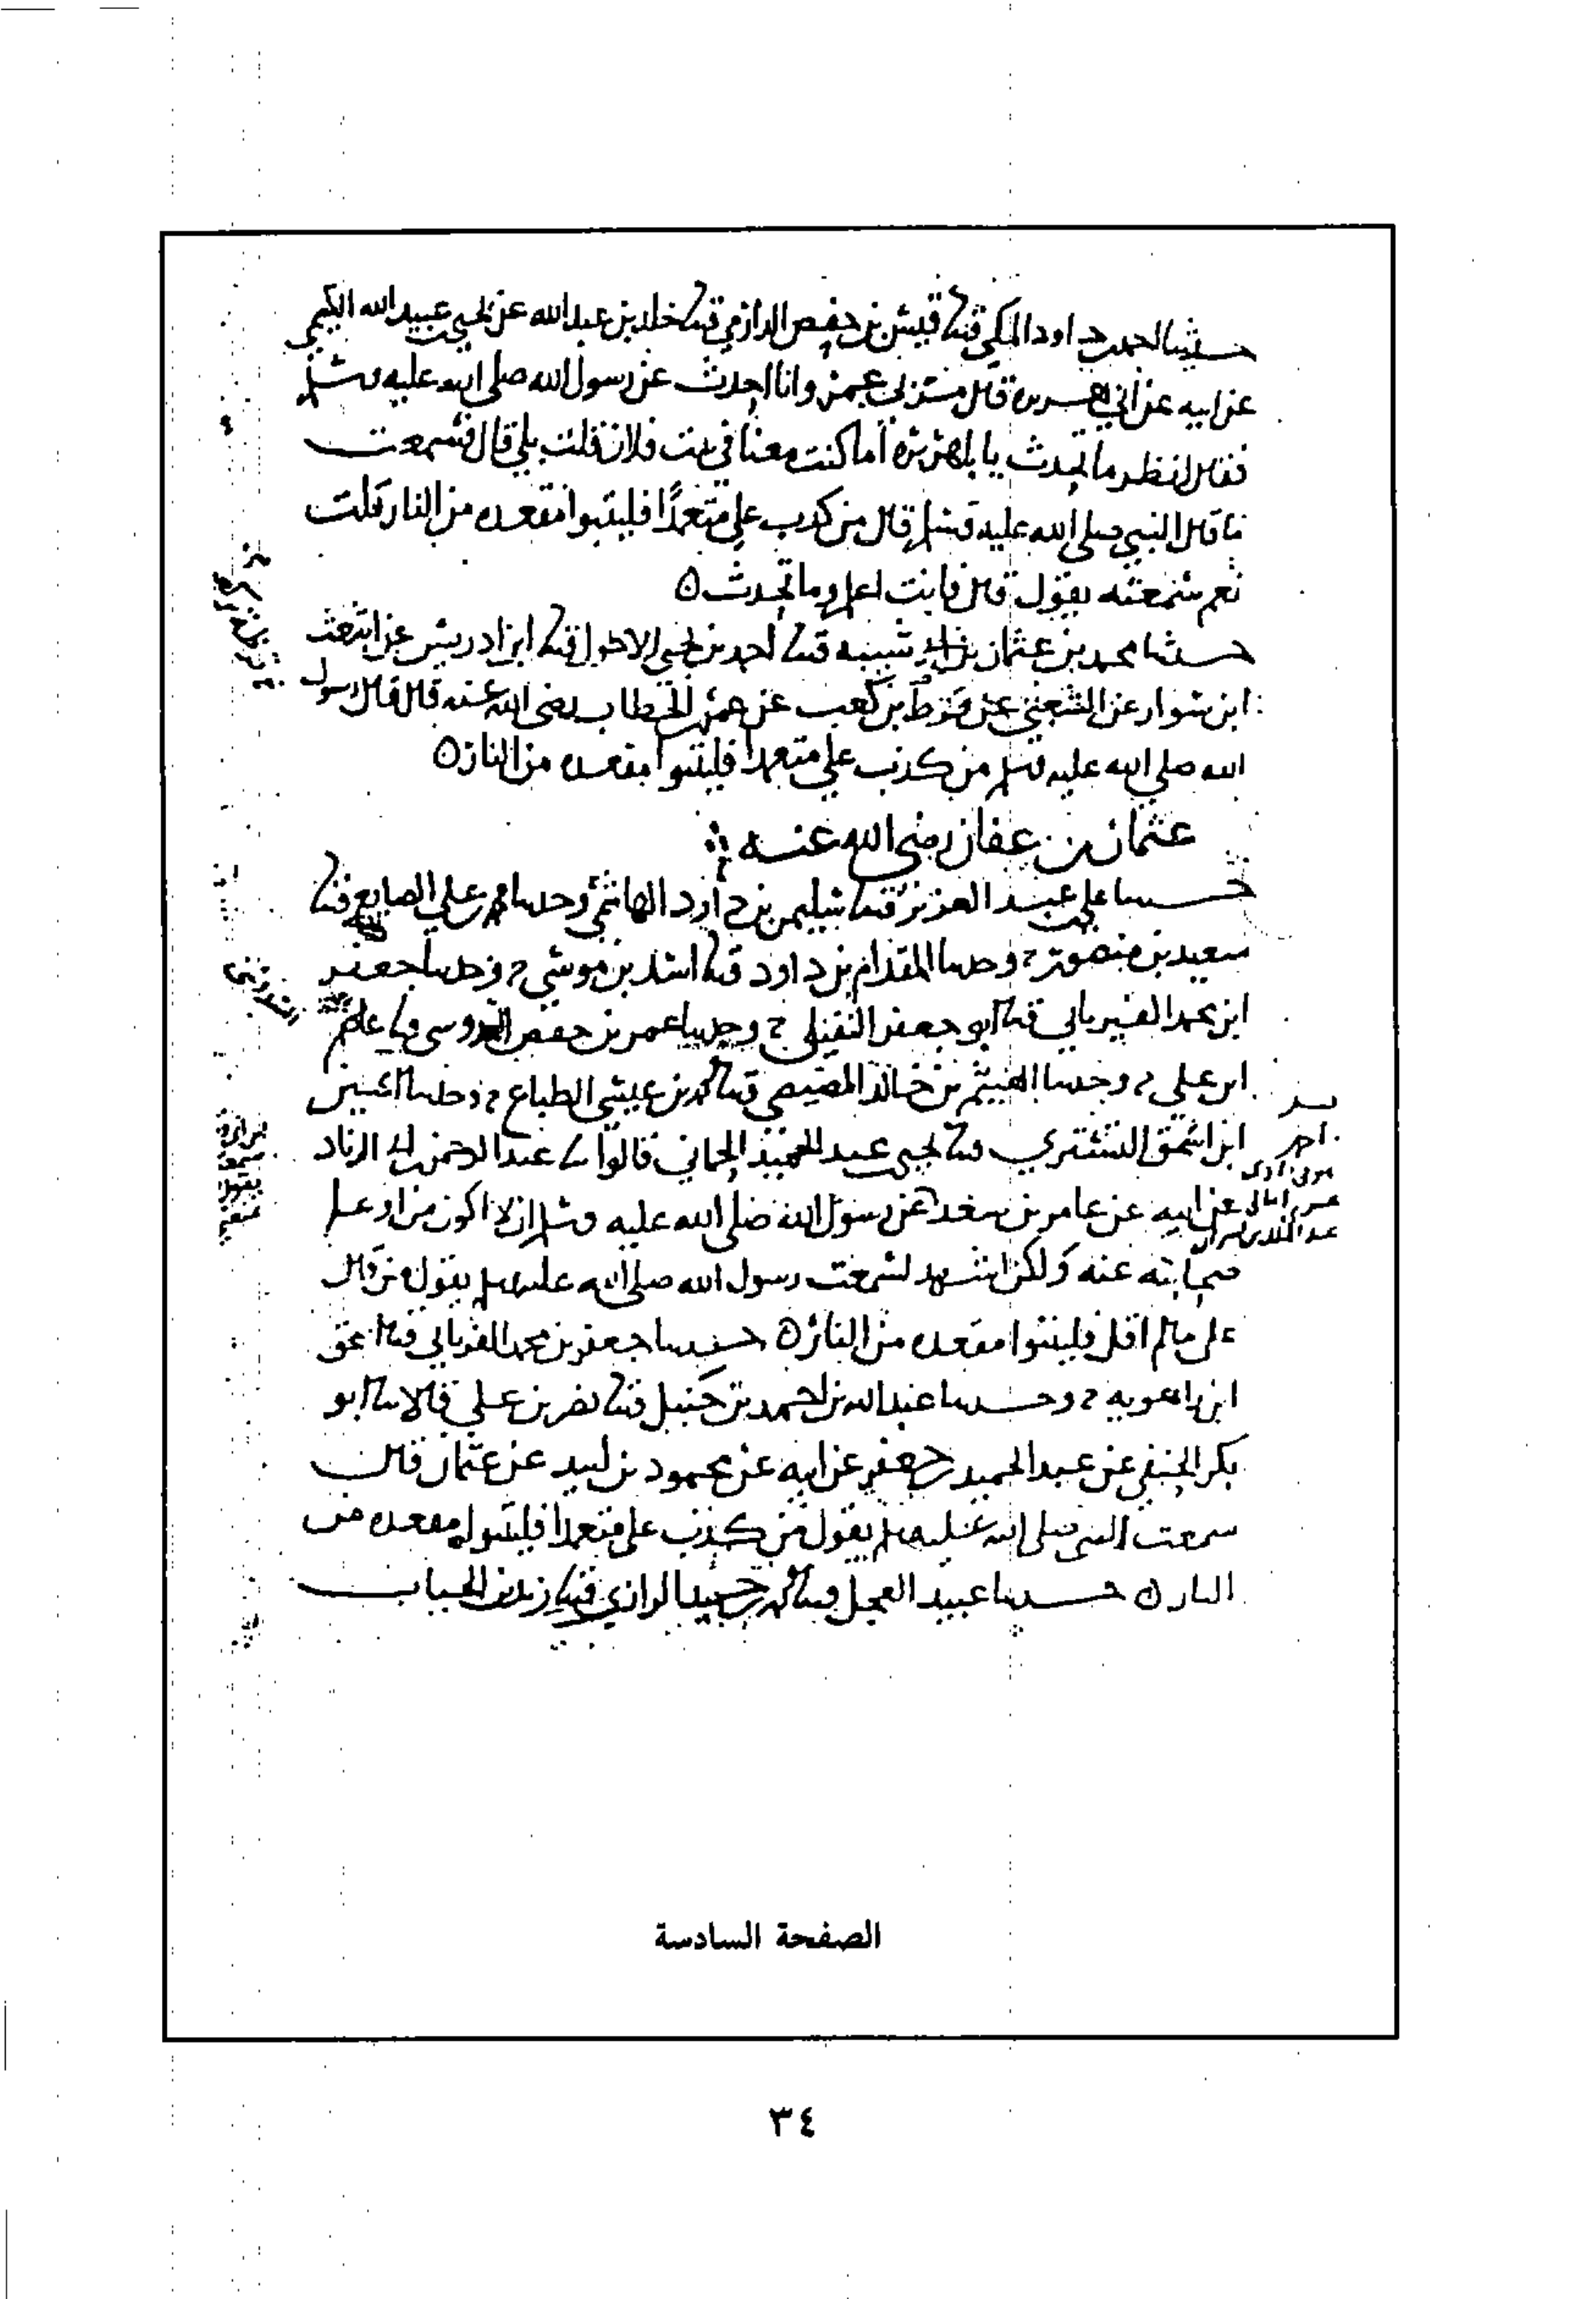 حدثنا احمد بن داود المكي ثنا قيس بن حفص الدارمي ثنا خالد بن عبد الله عن يحيى بن عبيد الله التيمي
عن ابيه عن ابي هريرة قال مر بي عمر وانا احدث عن رسول الله صلى الله عليه وسلم
فقال انظر ما تحدث يا باهريرة أما كنت معنا في بيت فلان قلت بلى قال فسمعت
ما قال النبي صلى الله عليه وسلم قال من كذب علي متعمدًا فليتبوا مقعده من النار قلت
نعم سمعته يقول قال فانت اعلم وما تحدث ه
حدثنا محمد بن عثمان بن ابي شيبه ثنا احمد بن يحيى الاحول ثنا ابن ادريس عن اشعث
ابن سوار عن الشعبي عن قرظة بن كعب عن عمر بن الخطاب رضي الله عنه قال قال رسول
الله صلى الله عليه وسلم من كذب علي متعمدا فليتبوا مقعده من النار ه
عثمان بن عفان رضي الله عنه
حدثنا علي بن عبد العزيز ثنا سليمن بن داود الهاشمي وحدثنا محمد بن علي الصايغ ثنا
سعيد بن منصور ح وحدثنا المقدام بن داود ثنا اسد بن موسى ح وحدثنا جعفر
ابن محمد الفريابي ثنا ابو جعفر النفيلي ح وحدثنا عمر بن حفص السدوسي ثنا عاصم
ابن علي ح وحدثنا الهيثم بن خالد المصيصي ثنا محمد بن عيسى الطباع ح وحدثنا الحسين
ابن اسحق التستري ثنا يحيى بن عبد الحميد الحماني قالوا ثنا عبد الرحمن بن ابي الزناد
عن ابيه عن عامر بن سعد عن رسول الله صلى الله عليه وسلم ان لا اكون من اوعى
صحابته عنه ولكن اشهد لسمعت رسول الله صلى الله عليه وسلم يقول من قال
علي ما لم اقل فليتبوا مقعده من النار ه حدثنا جعفر بن محمد الفريابي ثنا اسحق
ابن راهويه ح وحدثنا عبد الله بن احمد بن حنبل ثنا نصر بن علي قالا ثنا ابو
بكر الحنفي عن عبد الحميد بن جعفر عن ابيه عن محمود بن لبيد عن عثمان قال
سمعت النبي صلى الله عليه وسلم يقول من كذب علي متعمدا فليتبوا مقعده من
النار ه حدثنا عبيد العجل ثنا محمد بن حميد الرازي ثنا زيد بن الحباب
الصفحة السادسة
٣٤